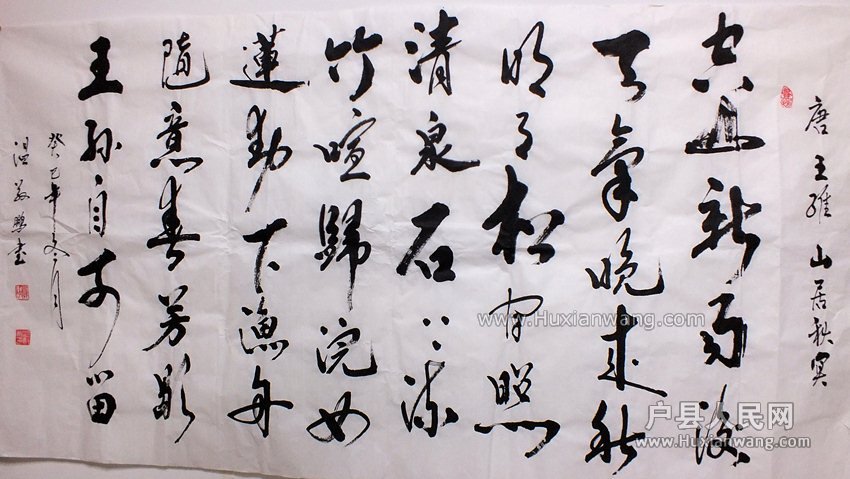 唐王維山居秋冥
空山新雨後
天氣晚來秋
明月松間照
清泉石上流
竹喧歸浣女
蓮動下漁舟
隨意春芳歇
王孫自可留
癸巳年冬月
www.Huxianwang.com
户县人民网
www.Huxianwang.com